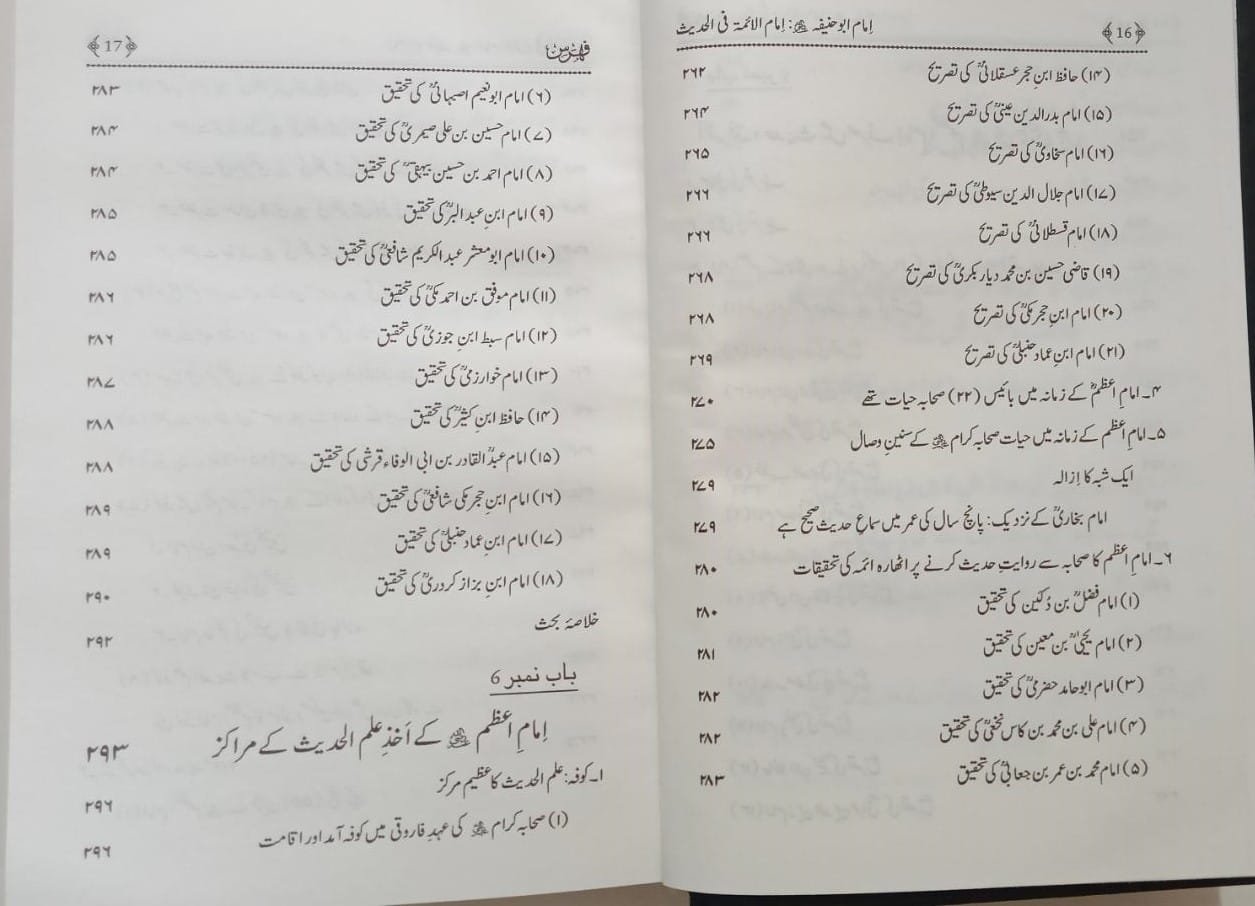 ﴿16﴾ امام ابو حنیفہ ؓ : اِمام الائمۃ فی الحدیث
(۱۴) حافظ ابنِ حجر عسقلانیؒ کی تصریح ۲۶۲
(۱۵) امام بدر الدین عینیؒ کی تصریح ۲۶۴
(۱۶) امام سخاویؒ کی تصریح ۲۶۵
(۱۷) امام جلال الدین سیوطیؒ کی تصریح ۲۶۶
(۱۸) امام قسطلانیؒ کی تصریح ۲۶۶
(۱۹) قاضی حسین بن محمد دیار بکریؒ کی تصریح ۲۶۸
(۲۰) امام ابنِ حجر مکیؒ کی تصریح ۲۶۸
(۲۱) امام ابنِ عماد حنبلیؒ کی تصریح ۲۶۹
۴۔ امامِ اعظمؒ کے زمانہ میں بائیس (۲۲) صحابہ حیات تھے ۲۷۰
۵۔ امامِ اعظم کے زمانہ میں حیات صحابہ کرام ؓ کے سنینِ وصال ۲۷۵
ایک شبہ کا اِزالہ ۲۷۹
امام بخاریؒ کے نزدیک: پانچ سال کی عمر میں سماعِ حدیث صحیح ہے ۲۷۹
۶۔ امامِ اعظم کا صحابہ سے روایتِ حدیث کرنے پر اٹھارہ ائمہ کی تحقیقات ۲۸۰
(۱) امام فضلؒ بن دُکین کی تحقیق ۲۸۰
(۲) امام یحییٰؒ بن معین کی تحقیق ۲۸۱
(۳) امام ابو حامد حضرمیؒ کی تحقیق ۲۸۲
(۴) امام علی بن محمد بن کاس نخعیؒ کی تحقیق ۲۸۲
(۵) امام محمد بن عمر بن جعابیؒ کی تحقیق ۲۸۳
فہرس ﴿17﴾
(۶) امام ابو نعیم اصبہانیؒ کی تحقیق ۲۸۳
(۷) امام حسین بن علی صیمریؒ کی تحقیق ۲۸۴
(۸) امام احمد بن حسین بیہقیؒ کی تحقیق ۲۸۴
(۹) امام ابنِ عبد البرؒ کی تحقیق ۲۸۵
(۱۰) امام ابو معشر عبد الکریم شافعیؒ کی تحقیق ۲۸۵
(۱۱) امام موفق بن احمد مکیؒ کی تحقیق ۲۸۶
(۱۲) امام سبط ابنِ جوزیؒ کی تحقیق ۲۸۶
(۱۳) امام خوارزمیؒ کی تحقیق ۲۸۷
(۱۴) حافظ ابنِ کثیرؒ کی تحقیق ۲۸۸
(۱۵) امام عبدؒ القادر بن ابی الوفاء قرشی کی تحقیق ۲۸۸
(۱۶) امام ابنِ حجر مکی شافعیؒ کی تحقیق ۲۸۹
(۱۷) امام ابنِ عماد حنبلیؒ کی تحقیق ۲۸۹
(۱۸) امام ابنِ بزاز کردریؒ کی تحقیق ۲۹۰
خلاصۂ بحث ۲۹۲
باب نمبر 6
اِمامِ اَعظم ؓ کے اَخذِ علم الحدیث کے مراکز ۲۹۳
۱۔ کوفہ: علم الحدیث کا عظیم مرکز ۲۹۶
(۱) صحابہ کرام ؓ کی عہدِ فاروقی میں کوفہ آمد اور اقامت ۲۹۶